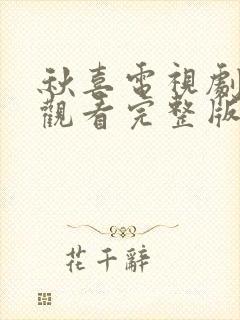 秋喜電視劇
觀看完整版
花千辭